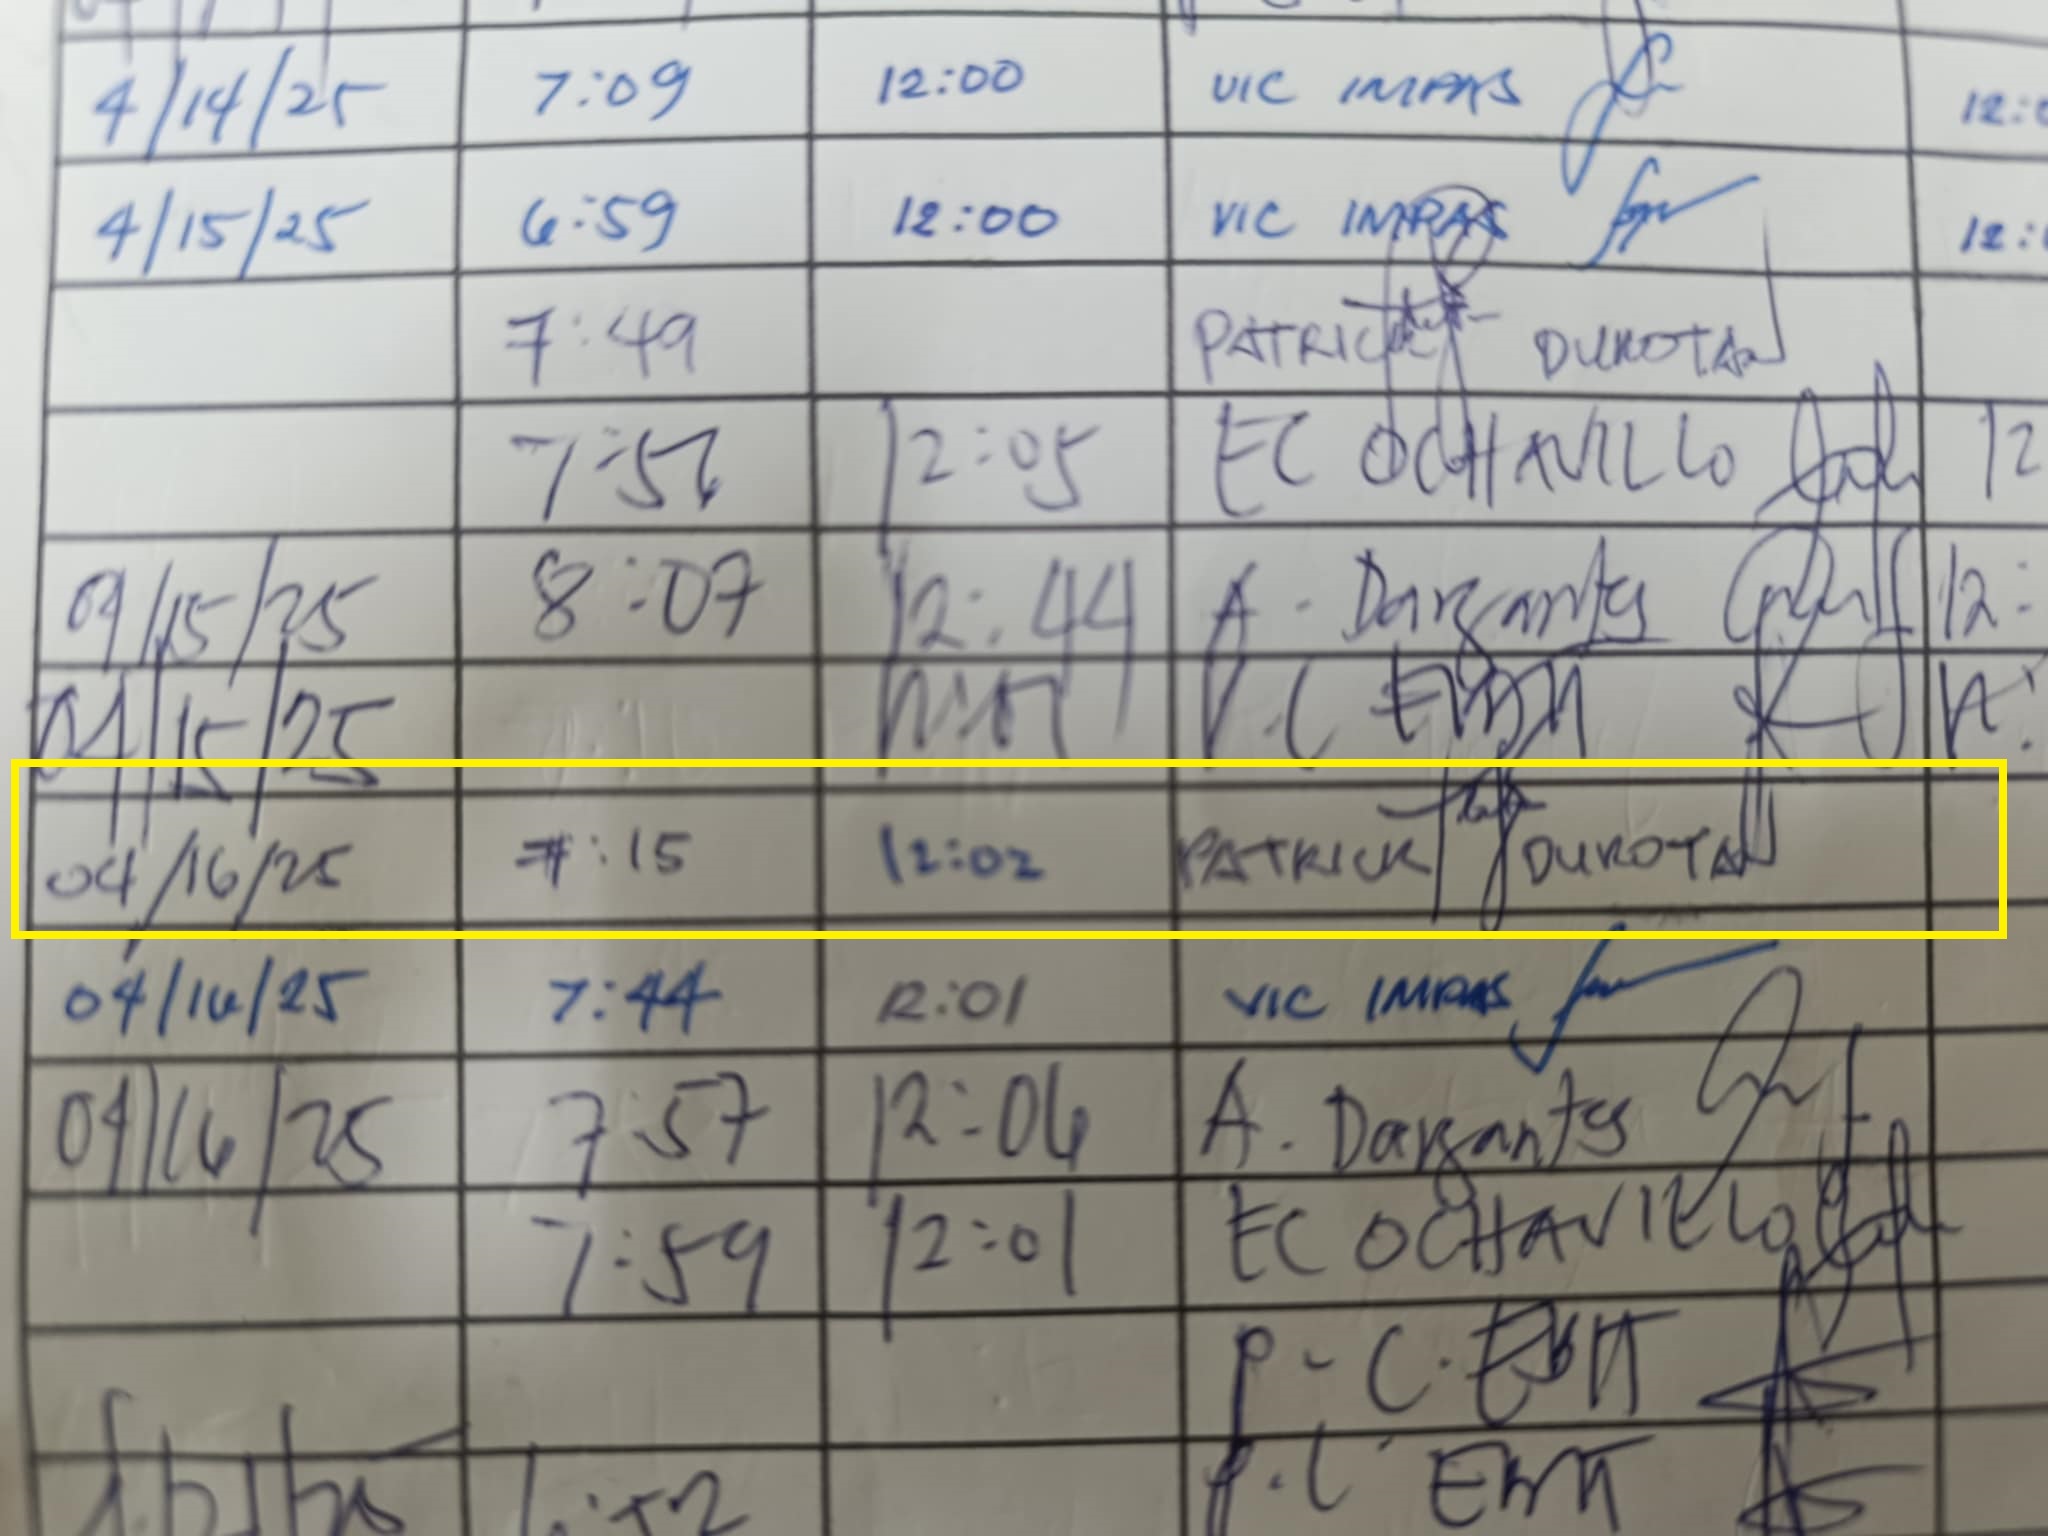 4/14/25 7:09 12:00 VIC IMPAS
4/15/25 6:59 12:00 VIC IMPAS
7:49 PATRICK DUROTAN
7:56 12:05 EC OCHAVILLO 12
04/15/25 8:07 12:44 A. Dargantes 12:
04/15/25 P.C
04/16/25 7:15 12:02 PATRICK DUROTAN
04/16/25 7:44 12:01 VIC IMPAS
04/16/25 7:57 12:06 A. Dargantes
7:59 12:01 EC OCHAVILLO
P.C.
P.C